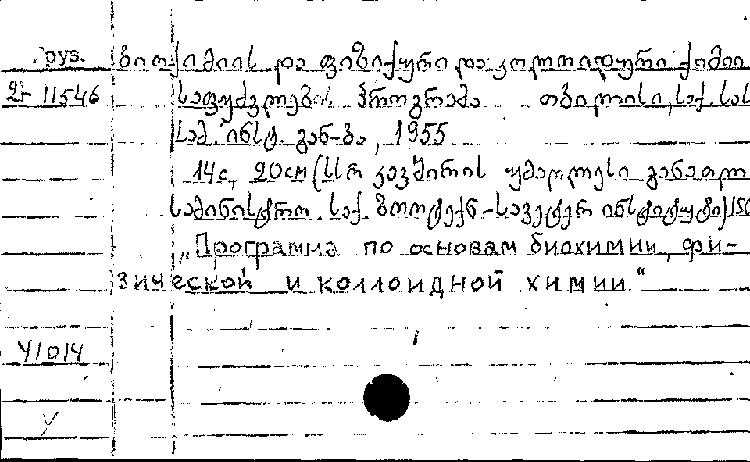 груз. ბიოქიმიის და ფიზიკური და კოლოიდური ქიმიი
2+ 11546 საფუძვლების პროგრამა თბილისი, საქ. სას
სამ. ინსტ. გან-ბა, 1955
14с, 20см (სსრ კავშირის უმაღლესი განათლ
სამინისტრო. საქ. ზოოტექნ-სავეტერ ინსტიტუტი) 150
„Программа по основам биохимии, фи-
зической и коллоидной химии"
41014
у